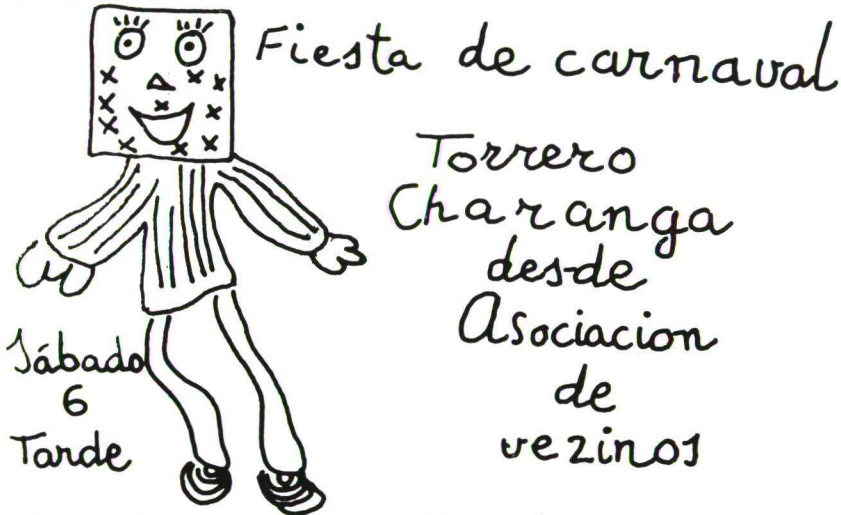 Fiesta de carnaval
Torrero
Charanga
desde
Asociacion
de
vezinos
Sábado
6
Tarde